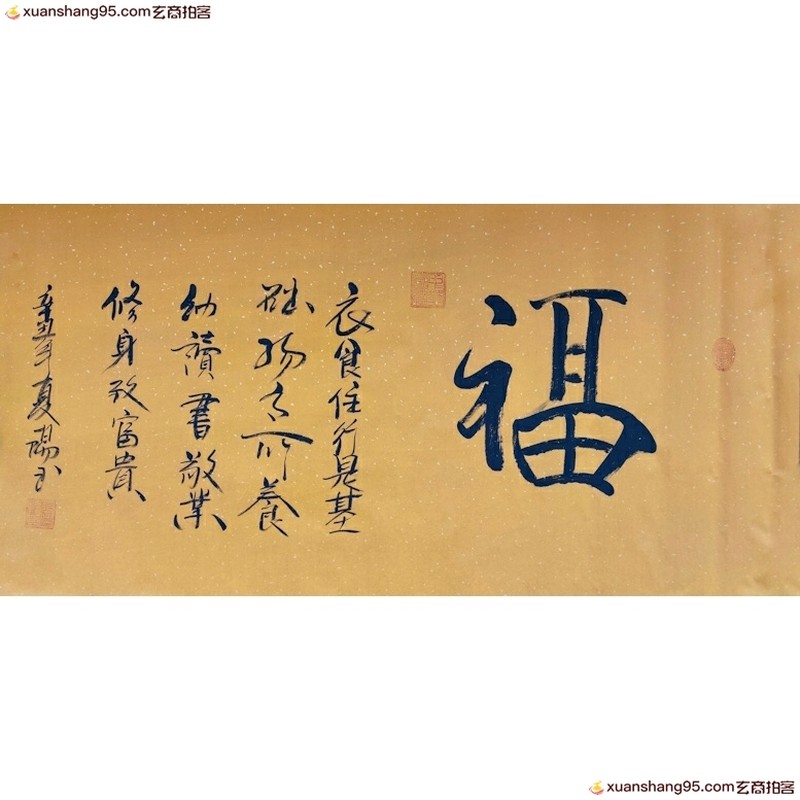 xuanshang95.com玄商拍客
福
衣食住行是基
础 所養
幼讀書敬業
修身致富貴
辛丑年夏陽书
xuanshang95.com玄商拍客